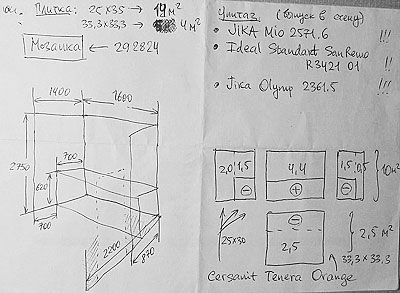 Плитка: 25x35 → 14 м²
33,3x33,3 → 4 м²
Мозаика ← 292824
1400
1600
2750
700
620
700
2200
870
Унитаз. (выпуск в стену)
• JIKA Mio 2571.6 !!!
• Ideal Standart SanRemo
R3421 01 !!
• Jika Olymp 2361.5 !!!
2,0 1,5 4,4 1,5 0,5 } 10 м²
25x30
2,5 } 2,5 м²
33,3x33,3
Cersanit Tenera Orange